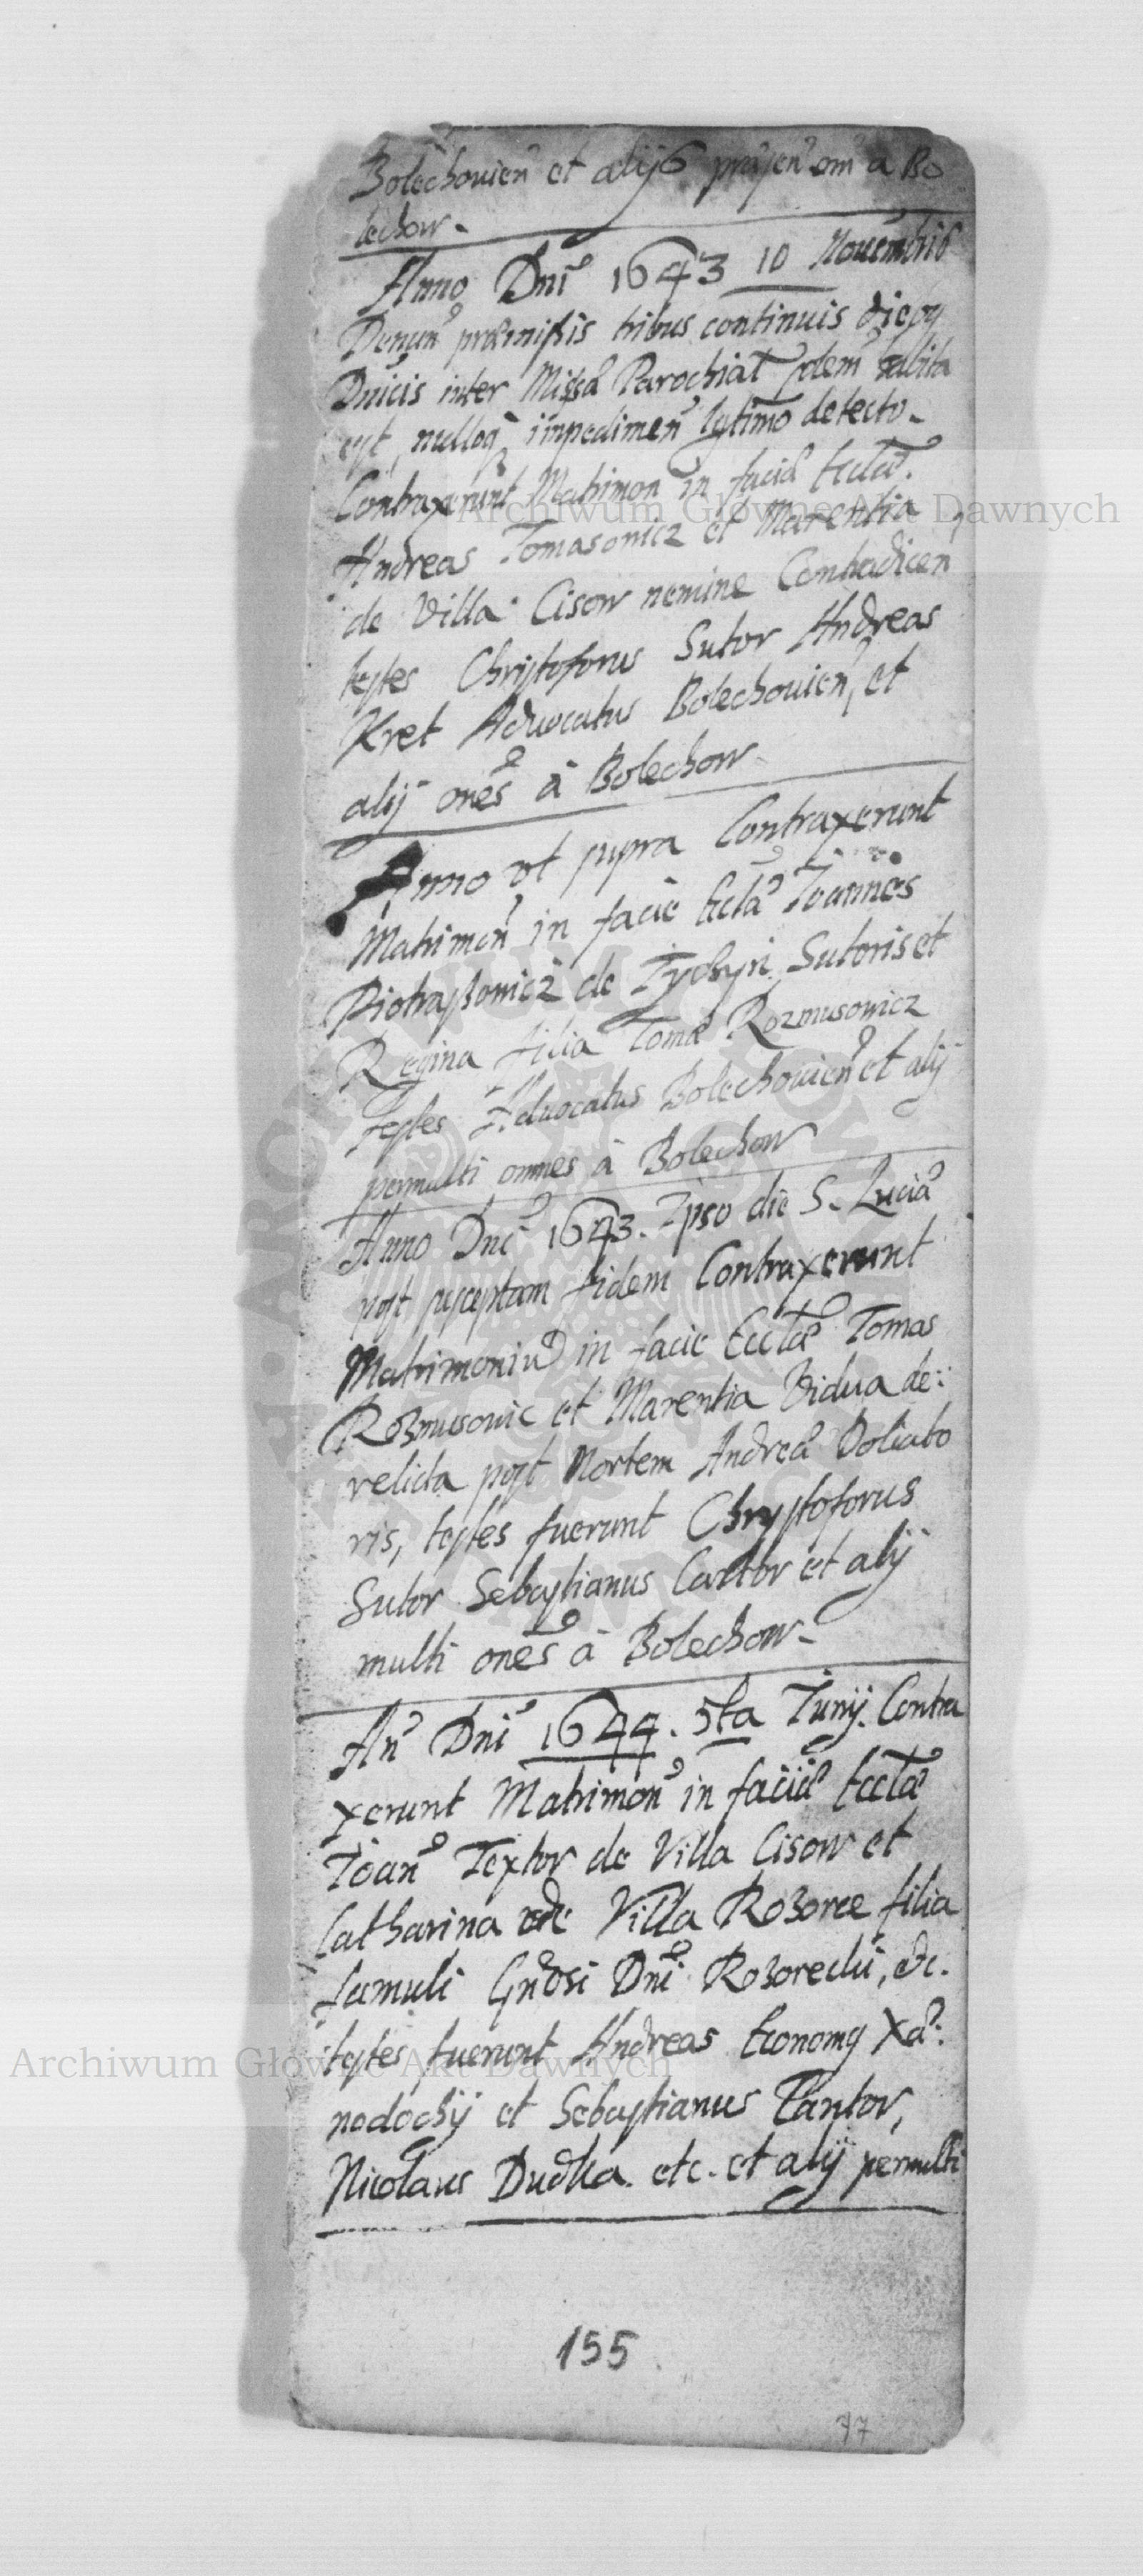 Bolechouien et alijs præsen om a Bo
lechow.
Anno Dni 1643 10 Nouembris
Denun præmissis tribus continuis dieby
Dnicis inter Missa Parochial habita
est, nulloq impedimen lgtimo detecto.
Contraxerunt Matrimon in facia Eccla.
Andreas Tomasowicz et Marentia
de Villa Cisow nemine Contradicen
testes Christoforus Sutor Andreas
Kret Aduocatus Bolechouien, et
alij ones à Bolechow.
Anno vt supra Contraxerunt
Matrimon in facie Eccla Joannes
Piotrassowicz de Tychyn Sutoris et
Regina filia Toma Rozmusowicz
Testes Aduocatus Bolechouien et alij
permulti omnes à Bolechow
Anno Dni 1643. Ipso die S. Lucia
post susceptam fidem Contraxerunt
Matrimoniu in facie Eccla Tomas
Rozmusowic et Marentia Vidua de
relicta post Mortem Andrea Doliato
ris, testes fuerunt Chrystoforus
Sutor Sebastianus Cantor et alij
multi ones à Bolechow.
An Dni 1644. 5ta Junij. Contra
xerunt Matrimon in facia Eccla
Joan Textor de Villa Cisow et
Catharina de Villa Rozoree filia
famuli Gnosi Dni &c.
testes fuerunt Andreas Economy Xæ
nodochij et Sebastianus Cantor,
Nicolaus Dudka etc. et alij permulti
155
77
Archiwum Główne Akt Dawnych
Archiwum Główne Akt Dawnych